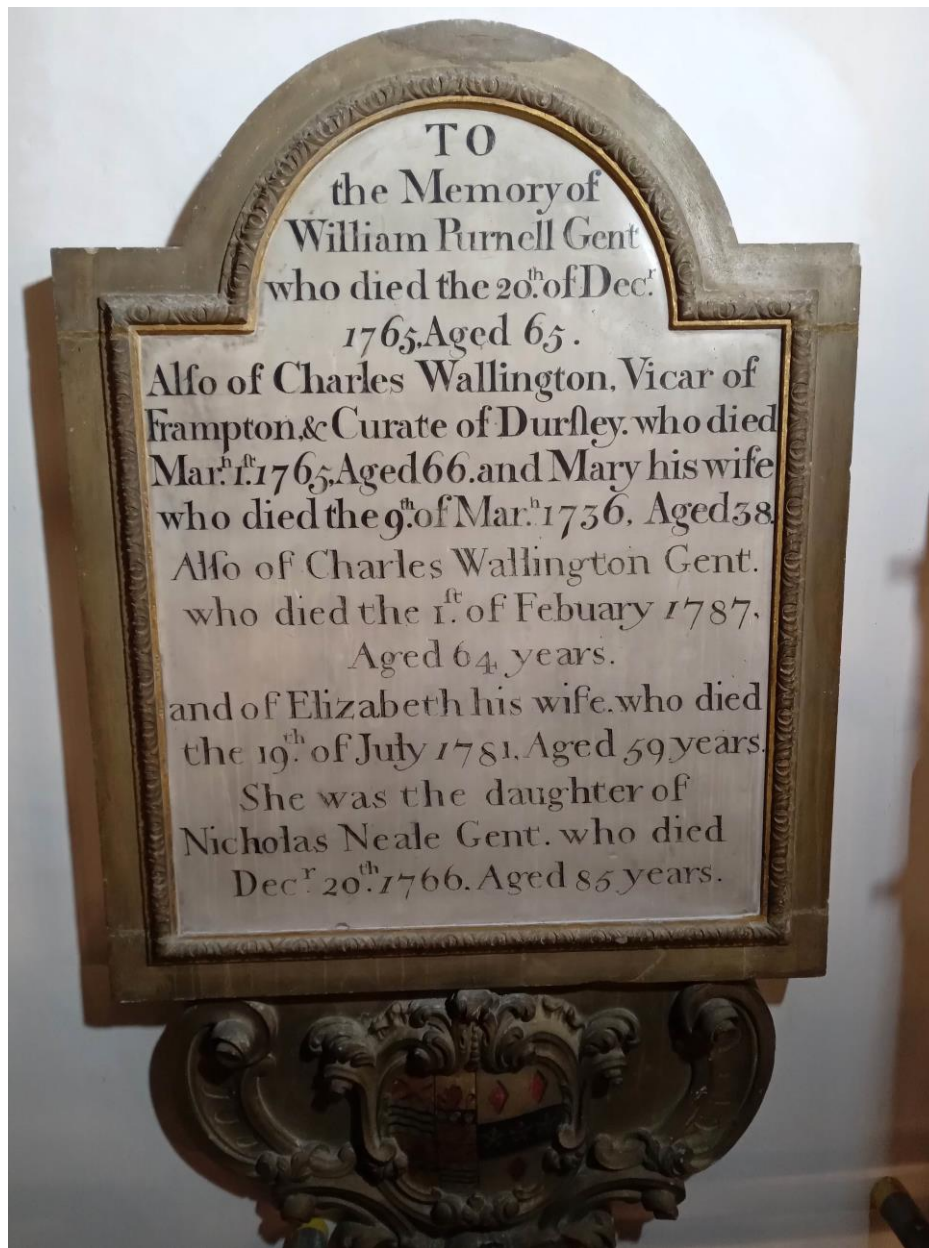 TO
the Memory of
William Purnell Gent
who died the 20.th of Dec.r
1765. Aged 65.
Alſo of Charles Wallington, Vicar of
Frampton, & Curate of Durſley. who died
Mar.h 1.ſt 1765, Aged 66. and Mary his wife
who died the 9.th of Mar.h 1736, Aged 38.
Alſo of Charles Wallington Gent.
who died the 1.ſt of Febuary 1787,
Aged 64 years.
and of Elizabeth his wife. who died
the 19.th of July 1781, Aged 59 years.
She was the daughter of
Nicholas Neale Gent. who died
Dec.r 20.th 1766. Aged 85 years.